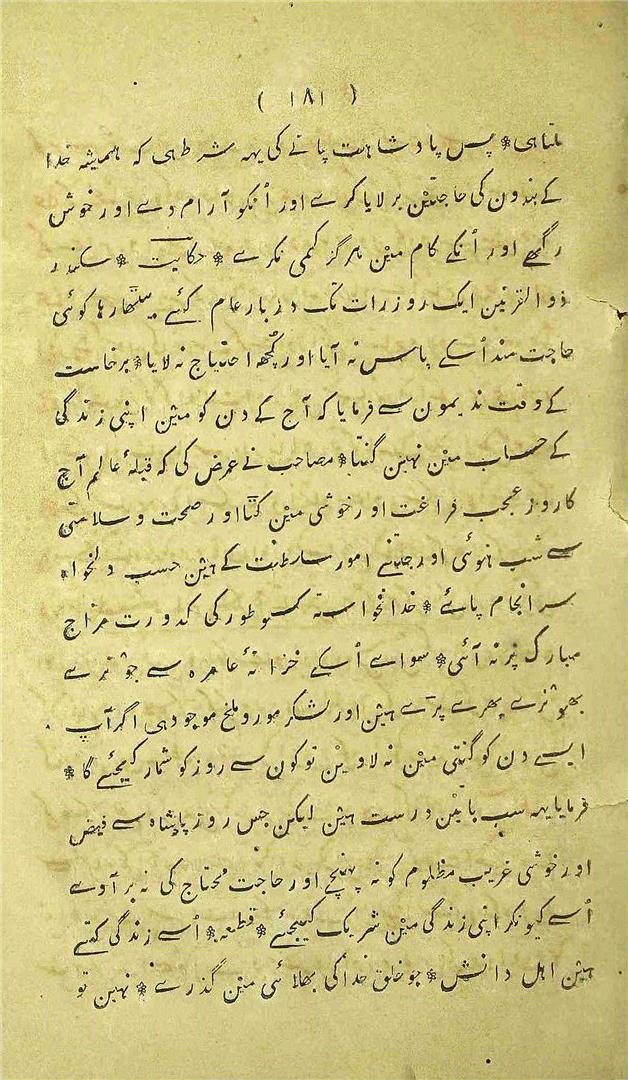 ( ۱۸۱ )
ملتا ہی * پس پادشاہت پانے کی یہہ شرط ہی کہ ہمیشہ خدا
کے بندون کی حاجتین بر لایا کرے اور اُنکو آرام دے اور خوش
رکھے اور اُنکے کام مین ہرگز کمی نکرے * حکایت * سکندر
ذو القرنین ایک روز رات تک دربار عام کئے بیٹھا رہا کوئی
حاجت مند اُسکے پاس نہ آیا اور کُچھہ احتیاج نہ لایا * برخاست
کے وقت ندیمون سے فرمایا کہ آج کے دن کو مین اپنی زندگی
کے حساب مین نہین گنتا * مصاحب نے عرض کی کہ قبلۂ عالم آج
کا روز عجب فراغت اور خوشی مین کتا اور صحت و سلامتی
سے شب ہوئی اور جتنے امور سلطنت کے ہین حسب دلخواہ
سر انجام پائے * خدا نخواستہ کسو طور کی کدورت مزاج
مبارک پر نہ آئی * سواے اُسکے خزانۂ عامرہ سے جو تر سے
بھونرے بھرے پڑے ہین اور لشکر مور و ملخ موجود ہی اگر آپ
ایسے دن کو گنتی مین نہ لاوین تو کون سے روز کو شمار کیجئے گا *
فرمایا یہہ سب باتین درست ہین لیکن جس روز پادشاہ سے فیض
اور خوشی غریب مظلوم کو نہ پہنچے اور حاجت محتاج کی نہ بر آوے
اُسے کیونکر اپنی زندگی مین شریک کیجئے * قطعہ * اُسے زندگی کہتے
ہین اہل دانش * جو خلق خدا کی بھلائی مین گذرے * نہین تو